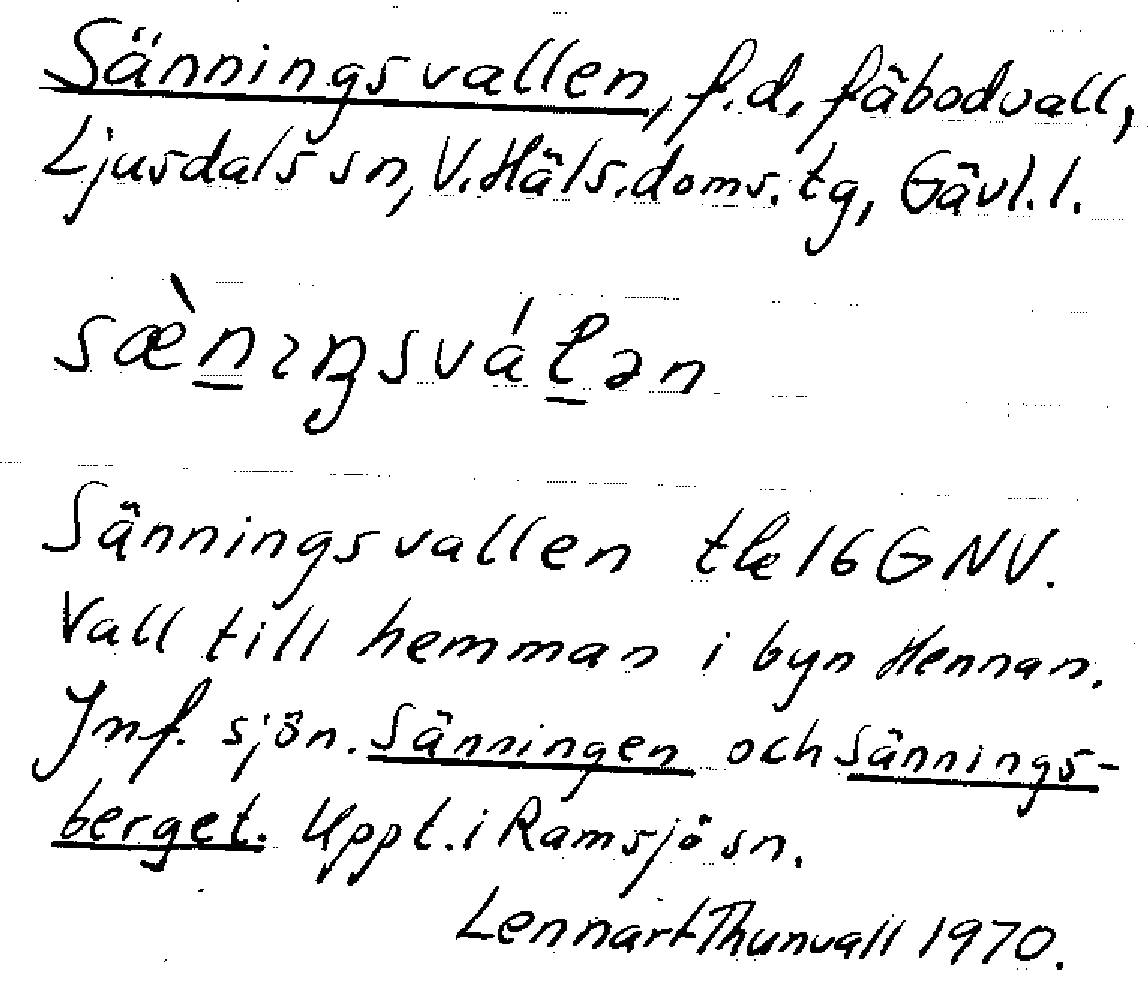 Sänningsvallen, f.d. fäbodvall,
Ljusdals sn, V.Häls.doms.tg, Gävl.l.
sæ̀n̲ıŋsvál̲ən
Sänningsvallen tlæ 16 G NV.
Vall till hemman i byn Hennan.
Jmf. sjön. Sänningen och Sännings-
berget. Uppt. i Ramsjö sn.
Lennart Thunvall 1970.